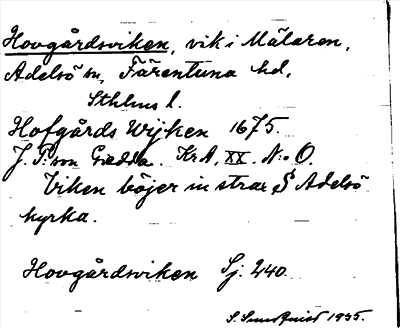 Hovgårdsviken, vik i Mälaren,
Adelsö sn, Färentuna hd,
Sthlms l.
Hofgårds Wijken 1675.
J. P:son Gedda. KrA, XX. N:o O.
Viken böjer in strax S Adelsö
kyrka.
Hovgårdsviken Sj. 240.
S. Sundquist 1935.